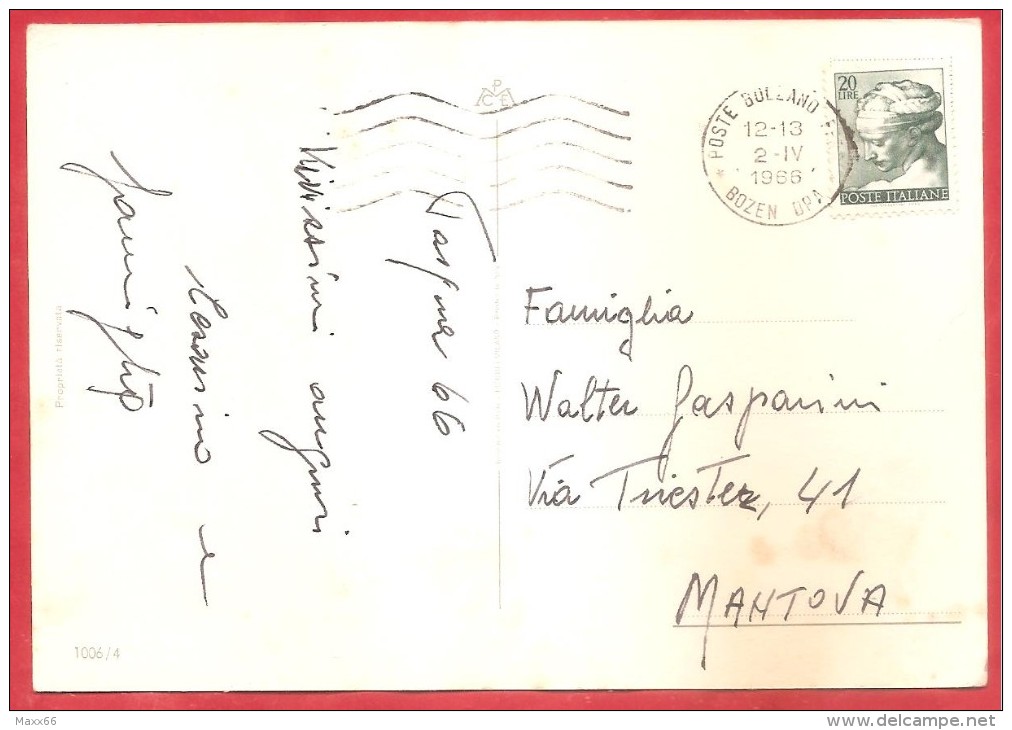 Pasqua 66
Vivissimi auguri
Massimo e
famiglia
Proprietà riservata
1006/4
PCE
POSTE BOLZANO
12-13
2-IV
1966
BOZEN
20
LIRE
POSTE ITALIANE
Famiglia
Walter Gasparini
Via Trieste, 41
MANTOVA
Maxx66
www.delcampe.net